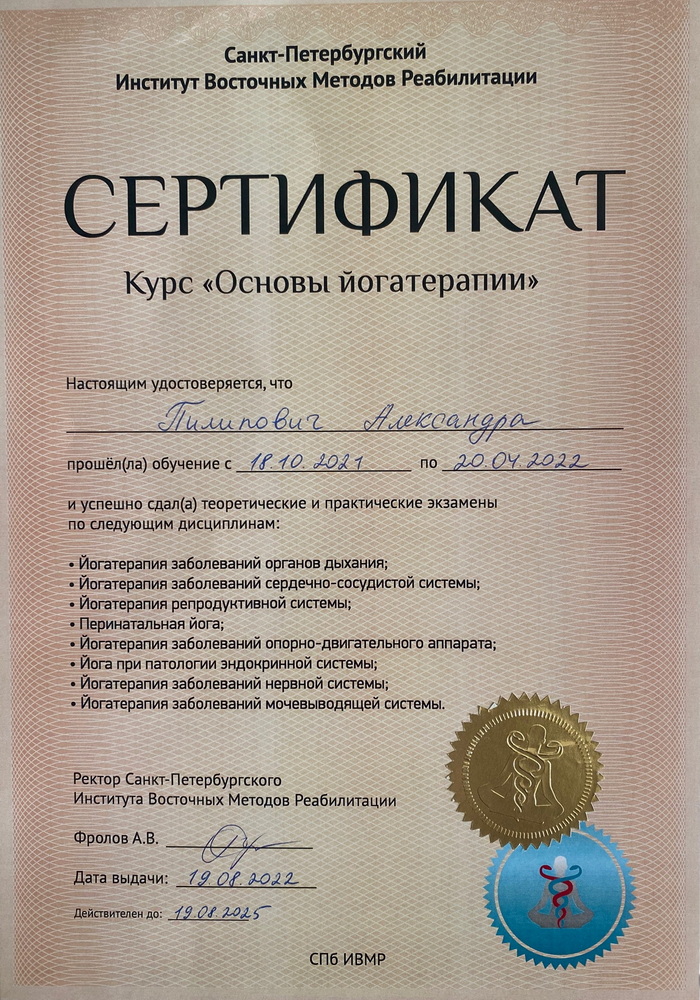 Санкт-Петербургский
Институт Восточных Методов Реабилитации
СЕРТИФИКАТ
Курс «Основы йогатерапии»
Настоящим удостоверяется, что
Пилипович Александра
прошёл(ла) обучение с 18.10.2021 по 20.04.2022
и успешно сдал(а) теоретические и практические экзамены
по следующим дисциплинам:
• Йогатерапия заболеваний органов дыхания;
• Йогатерапия заболеваний сердечно-сосудистой системы;
• Йогатерапия репродуктивной системы;
• Перинатальная йога;
• Йогатерапия заболеваний опорно-двигательного аппарата;
• Йога при патологии эндокринной системы;
• Йогатерапия заболеваний нервной системы;
• Йогатерапия заболеваний мочевыводящей системы.
Ректор Санкт-Петербургского
Института Восточных Методов Реабилитации
Фролов А.В.
Дата выдачи: 19.08.2022
Действителен до: 19.08.2025
СПб ИВМР